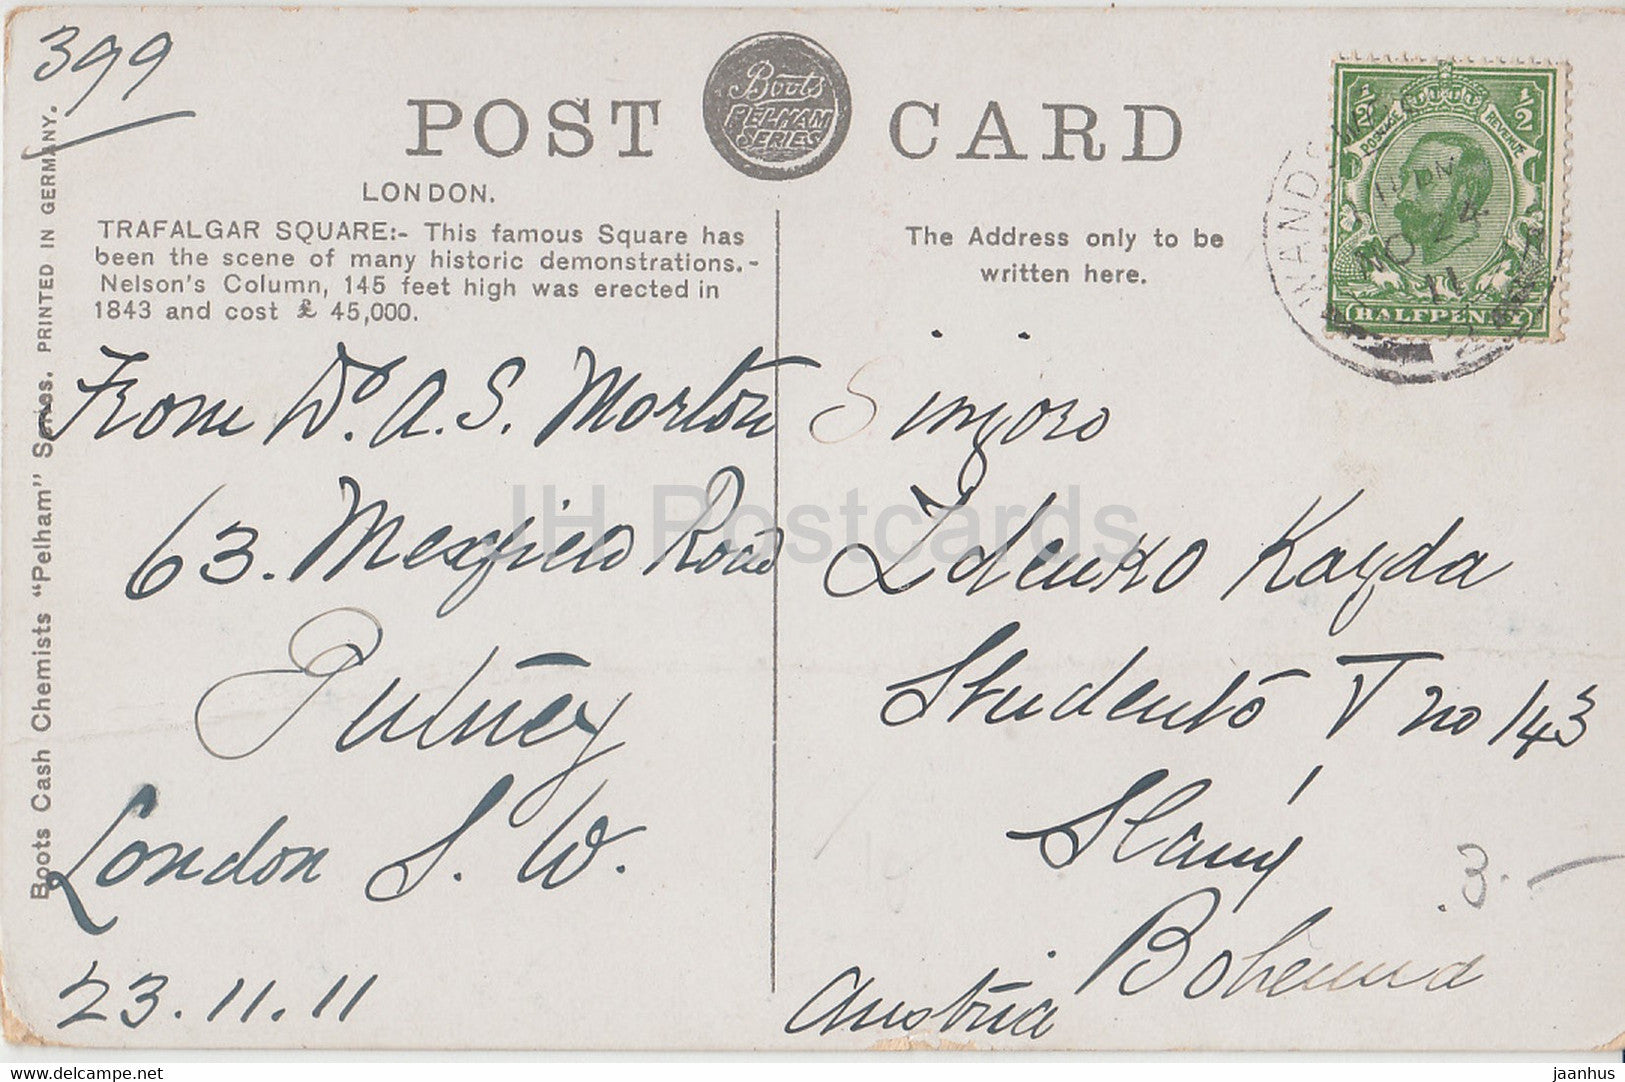 399
POST CARD
Boots
PELHAM
SERIES
LONDON.
TRAFALGAR SQUARE:- This famous Square has
been the scene of many historic demonstrations.-
Nelson's Column, 145 feet high was erected in
1843 and cost £ 45,000.
The Address only to be
written here.
POSTAGE REVENUE
½ ½
HALFPENNY
NO 24
11
Boots Cash Chemists "Pelham" Series. PRINTED IN GERMANY.
From Dr. A. S. Morton
63. Mexfield Road
Putney
London S. W.
23.11.11
Sinjoro
Zdenko Kayda
Studento V no 143
Slaný
Bohemia
Austria
3.-
JH Postcards
delcampe.net
jaanhus